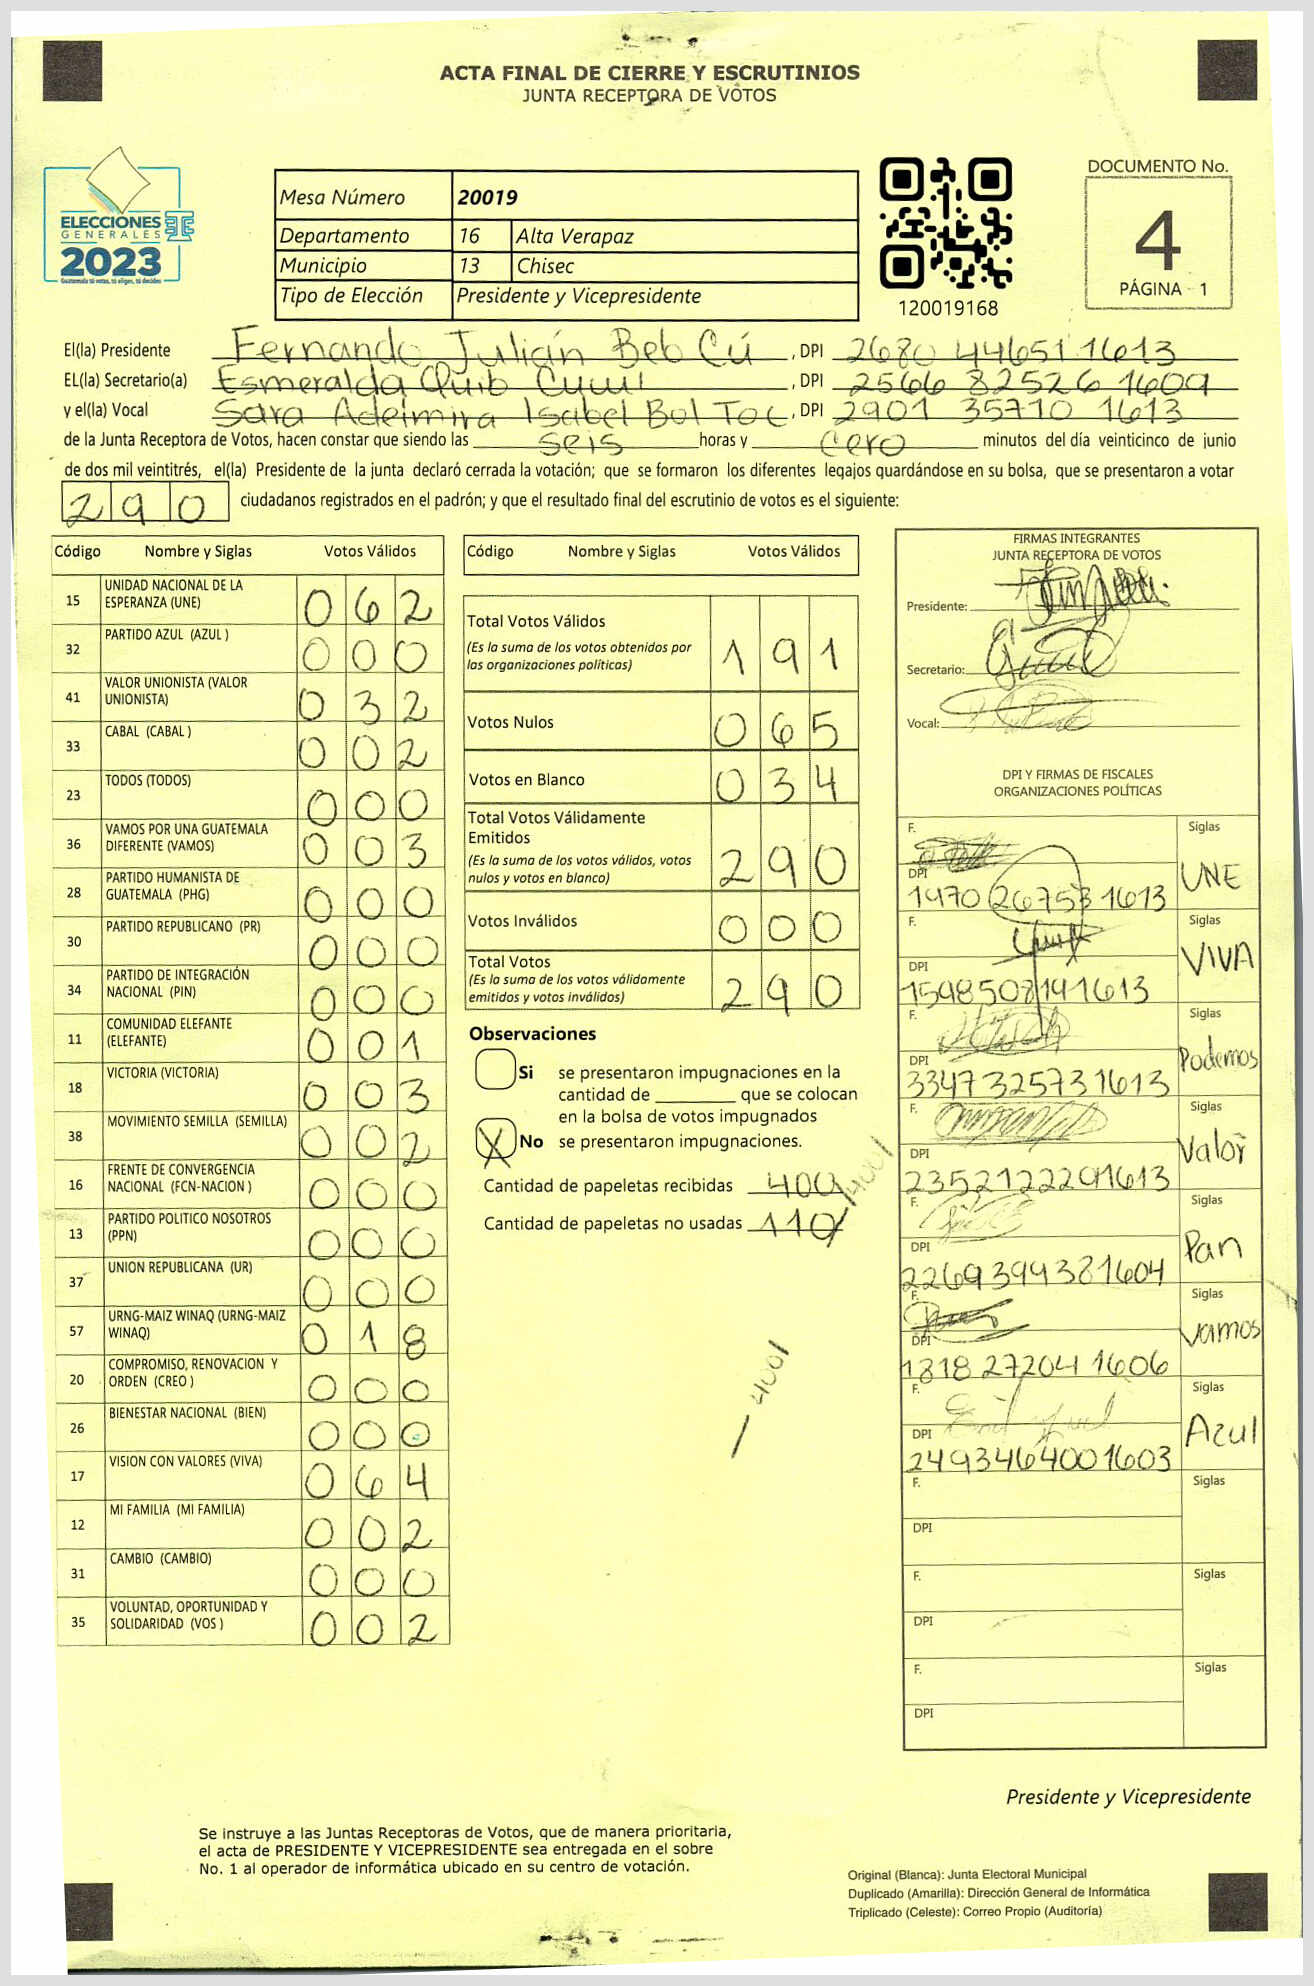 ACTA FINAL DE CIERRE Y ESCRUTINIOS
JUNTA RECEPTORA DE VOTOS
ELECCIONES
GENERALES
2023
Guatemala tú votas, tú eliges, tú decides
Mesa Número 20019
Departamento 16 Alta Verapaz
Municipio 13 Chisec
Tipo de Elección Presidente y Vicepresidente
120019168
DOCUMENTO No.
4
PÁGINA - 1
El(la) Presidente Fernando Julián Beb Cú, DPI 2680 44651 1613
EL(la) Secretario(a) Esmeralda Quib Cuul, DPI 2566 82526 1609
y el(la) Vocal Sara Adelmira Isabel Bol Toc, DPI 2901 35710 1613
de la Junta Receptora de Votos, hacen constar que siendo las seis horas y cero minutos del día veinticinco de junio
de dos mil veintitrés, el(la) Presidente de la junta declaró cerrada la votación; que se formaron los diferentes legajos quardándose en su bolsa, que se presentaron a votar
290 ciudadanos registrados en el padrón; y que el resultado final del escrutinio de votos es el siguiente:
Código Nombre y Siglas Votos Válidos
15 UNIDAD NACIONAL DE LA ESPERANZA (UNE) 062
32 PARTIDO AZUL (AZUL ) 000
41 VALOR UNIONISTA (VALOR UNIONISTA) 032
33 CABAL (CABAL ) 002
23 TODOS (TODOS) 000
36 VAMOS POR UNA GUATEMALA DIFERENTE (VAMOS) 003
28 PARTIDO HUMANISTA DE GUATEMALA (PHG) 000
30 PARTIDO REPUBLICANO (PR) 000
34 PARTIDO DE INTEGRACIÓN NACIONAL (PIN) 000
11 COMUNIDAD ELEFANTE (ELEFANTE) 001
18 VICTORIA (VICTORIA) 003
38 MOVIMIENTO SEMILLA (SEMILLA) 002
16 FRENTE DE CONVERGENCIA NACIONAL (FCN-NACION ) 000
13 PARTIDO POLITICO NOSOTROS (PPN) 000
37 UNION REPUBLICANA (UR) 000
57 URNG-MAIZ WINAQ (URNG-MAIZ WINAQ) 018
20 COMPROMISO, RENOVACION Y ORDEN (CREO ) 000
26 BIENESTAR NACIONAL (BIEN) 000
17 VISION CON VALORES (VIVA) 064
12 MI FAMILIA (MI FAMILIA) 002
31 CAMBIO (CAMBIO) 000
35 VOLUNTAD, OPORTUNIDAD Y SOLIDARIDAD (VOS ) 002
Código Nombre y Siglas Votos Válidos
Total Votos Válidos
(Es la suma de los votos obtenidos por
las organizaciones políticas) 191
Votos Nulos 065
Votos en Blanco 034
Total Votos Válidamente
Emitidos
(Es la suma de los votos válidos, votos
nulos y votos en blanco) 290
Votos Inválidos 000
Total Votos
(Es la suma de los votos válidamente
emitidos y votos inválidos) 290
Observaciones
Si se presentaron impugnaciones en la
cantidad de ________ que se colocan
en la bolsa de votos impugnados
X No se presentaron impugnaciones.
Cantidad de papeletas recibidas 400/ 400/
Cantidad de papeletas no usadas 110/
— 400/
FIRMAS INTEGRANTES
JUNTA RECEPTORA DE VOTOS
Presidente:
Secretario:
Vocal:
DPI Y FIRMAS DE FISCALES
ORGANIZACIONES POLÍTICAS
F. Siglas
DPI 1970 26753 1613 UNE
F. Siglas
DPI 1598508191613 VIVA
F. Siglas
DPI 3347325731613 Podemos
F. Siglas
DPI 2352122291613 Valor
F. Siglas
DPI 2269399381604 Pan
F. Siglas
DPI 1818 27204 1606 Vamos
F. Siglas
DPI 2493464001603 Azul
F. Siglas
DPI
F. Siglas
DPI
F. Siglas
DPI
Presidente y Vicepresidente
Se instruye a las Juntas Receptoras de Votos, que de manera prioritaria,
el acta de PRESIDENTE Y VICEPRESIDENTE sea entregada en el sobre
No. 1 al operador de informática ubicado en su centro de votación.
Original (Blanca): Junta Electoral Municipal
Duplicado (Amarilla): Dirección General de Informática
Triplicado (Celeste): Correo Propio (Auditoría)